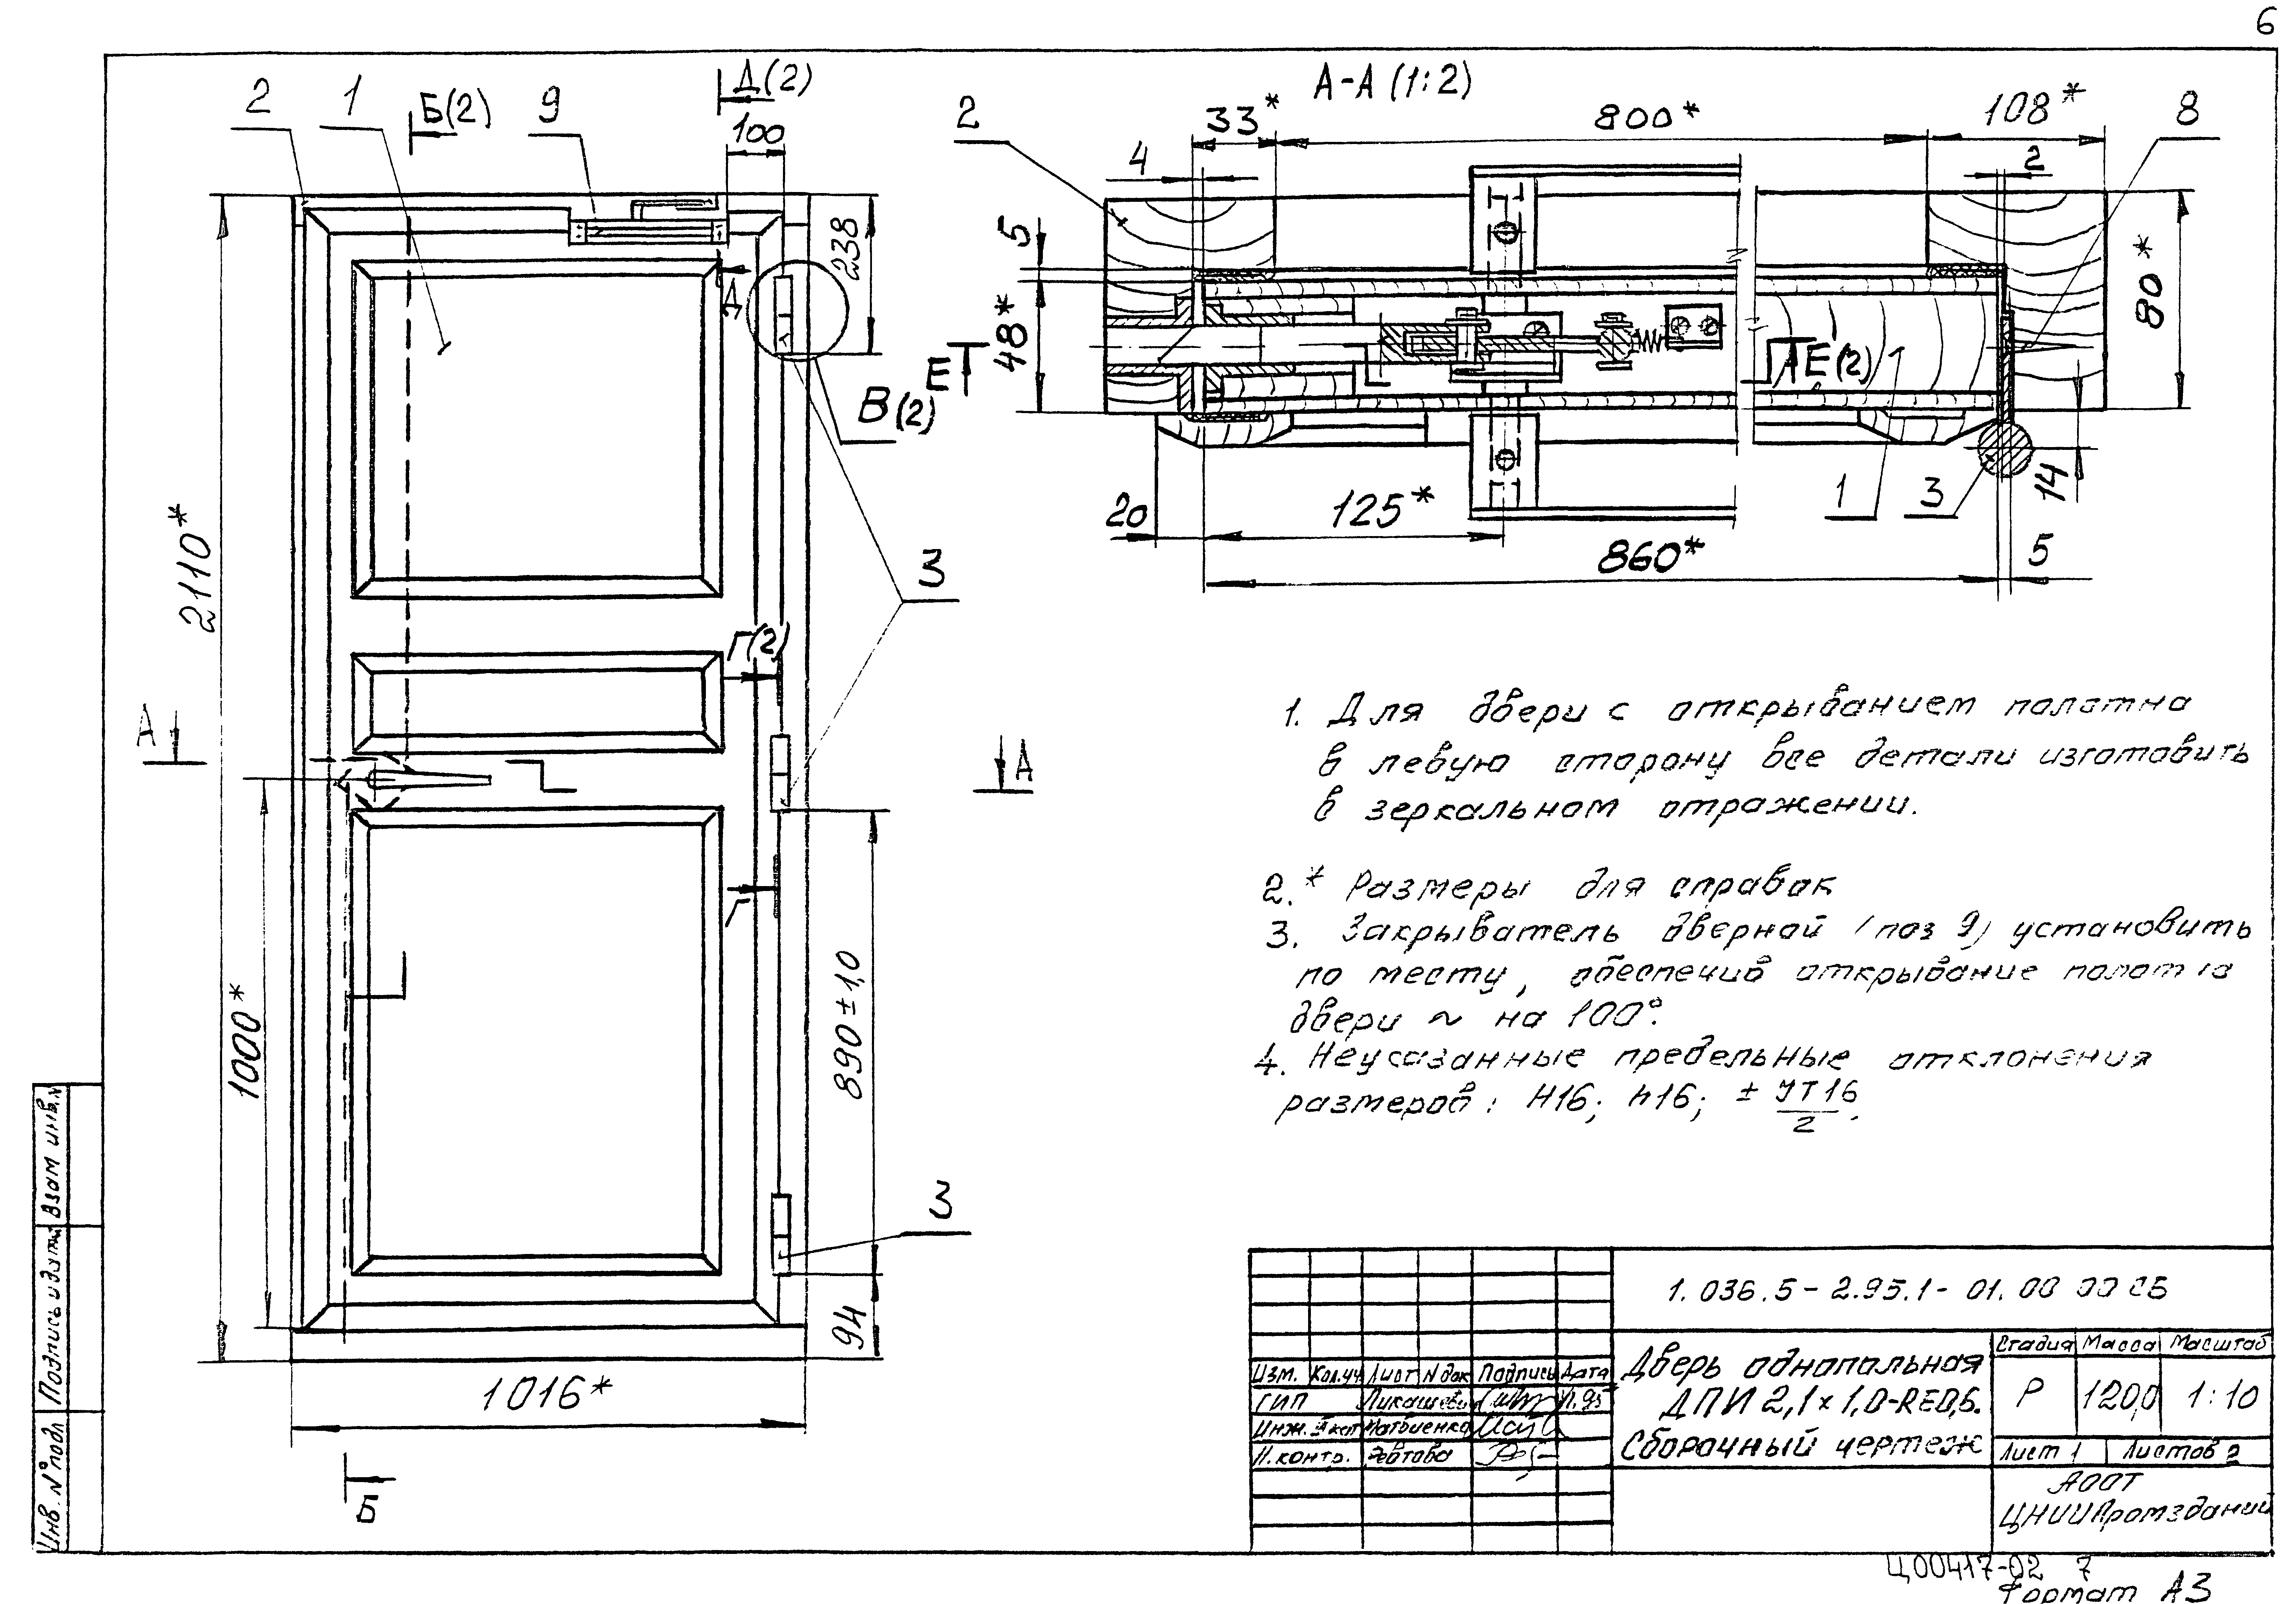 6
2
1
Б(2)
9
Д(2)
100
238
Д
В(2)
2110*
3
Г(2)
А
А
Г
1000*
890±1,0
3
94
1016*
Б
А-А (1:2)
2
33*
800*
108*
8
4
2
5
48*
80*
Е
Е(2)
20
125*
1
3
14
860*
5
1. Для двери с открыванием полотна
в левую сторону все детали изготовить
в зеркальном отражении.
2.* Размеры для справок
3. Закрыватель дверной (поз 9) установить
по месту, обеспечив открывание полотна
двери ~ на 100°.
4. Неуказанные предельные отклонения
размеров: H16; h16; ± JT16
2
1.036.5-2.95.1-01.00 00 СБ
Дверь однопольная
ДПИ 2,1×1,0-RE0,6.
Сборочный чертеж
Стадия Масса Масштаб
Р 120,0 1:10
Лист 1 Листов 2
АООТ
ЦНИИПромзданий
Изм. Кол.уч Лист N док Подпись Дата
ГИП
Инж. Iкат Матвиенко
Н.контр.
Взам инв.N
Подпись и дата
Инв. N° подл
Ц00417-02 7
Формат А3